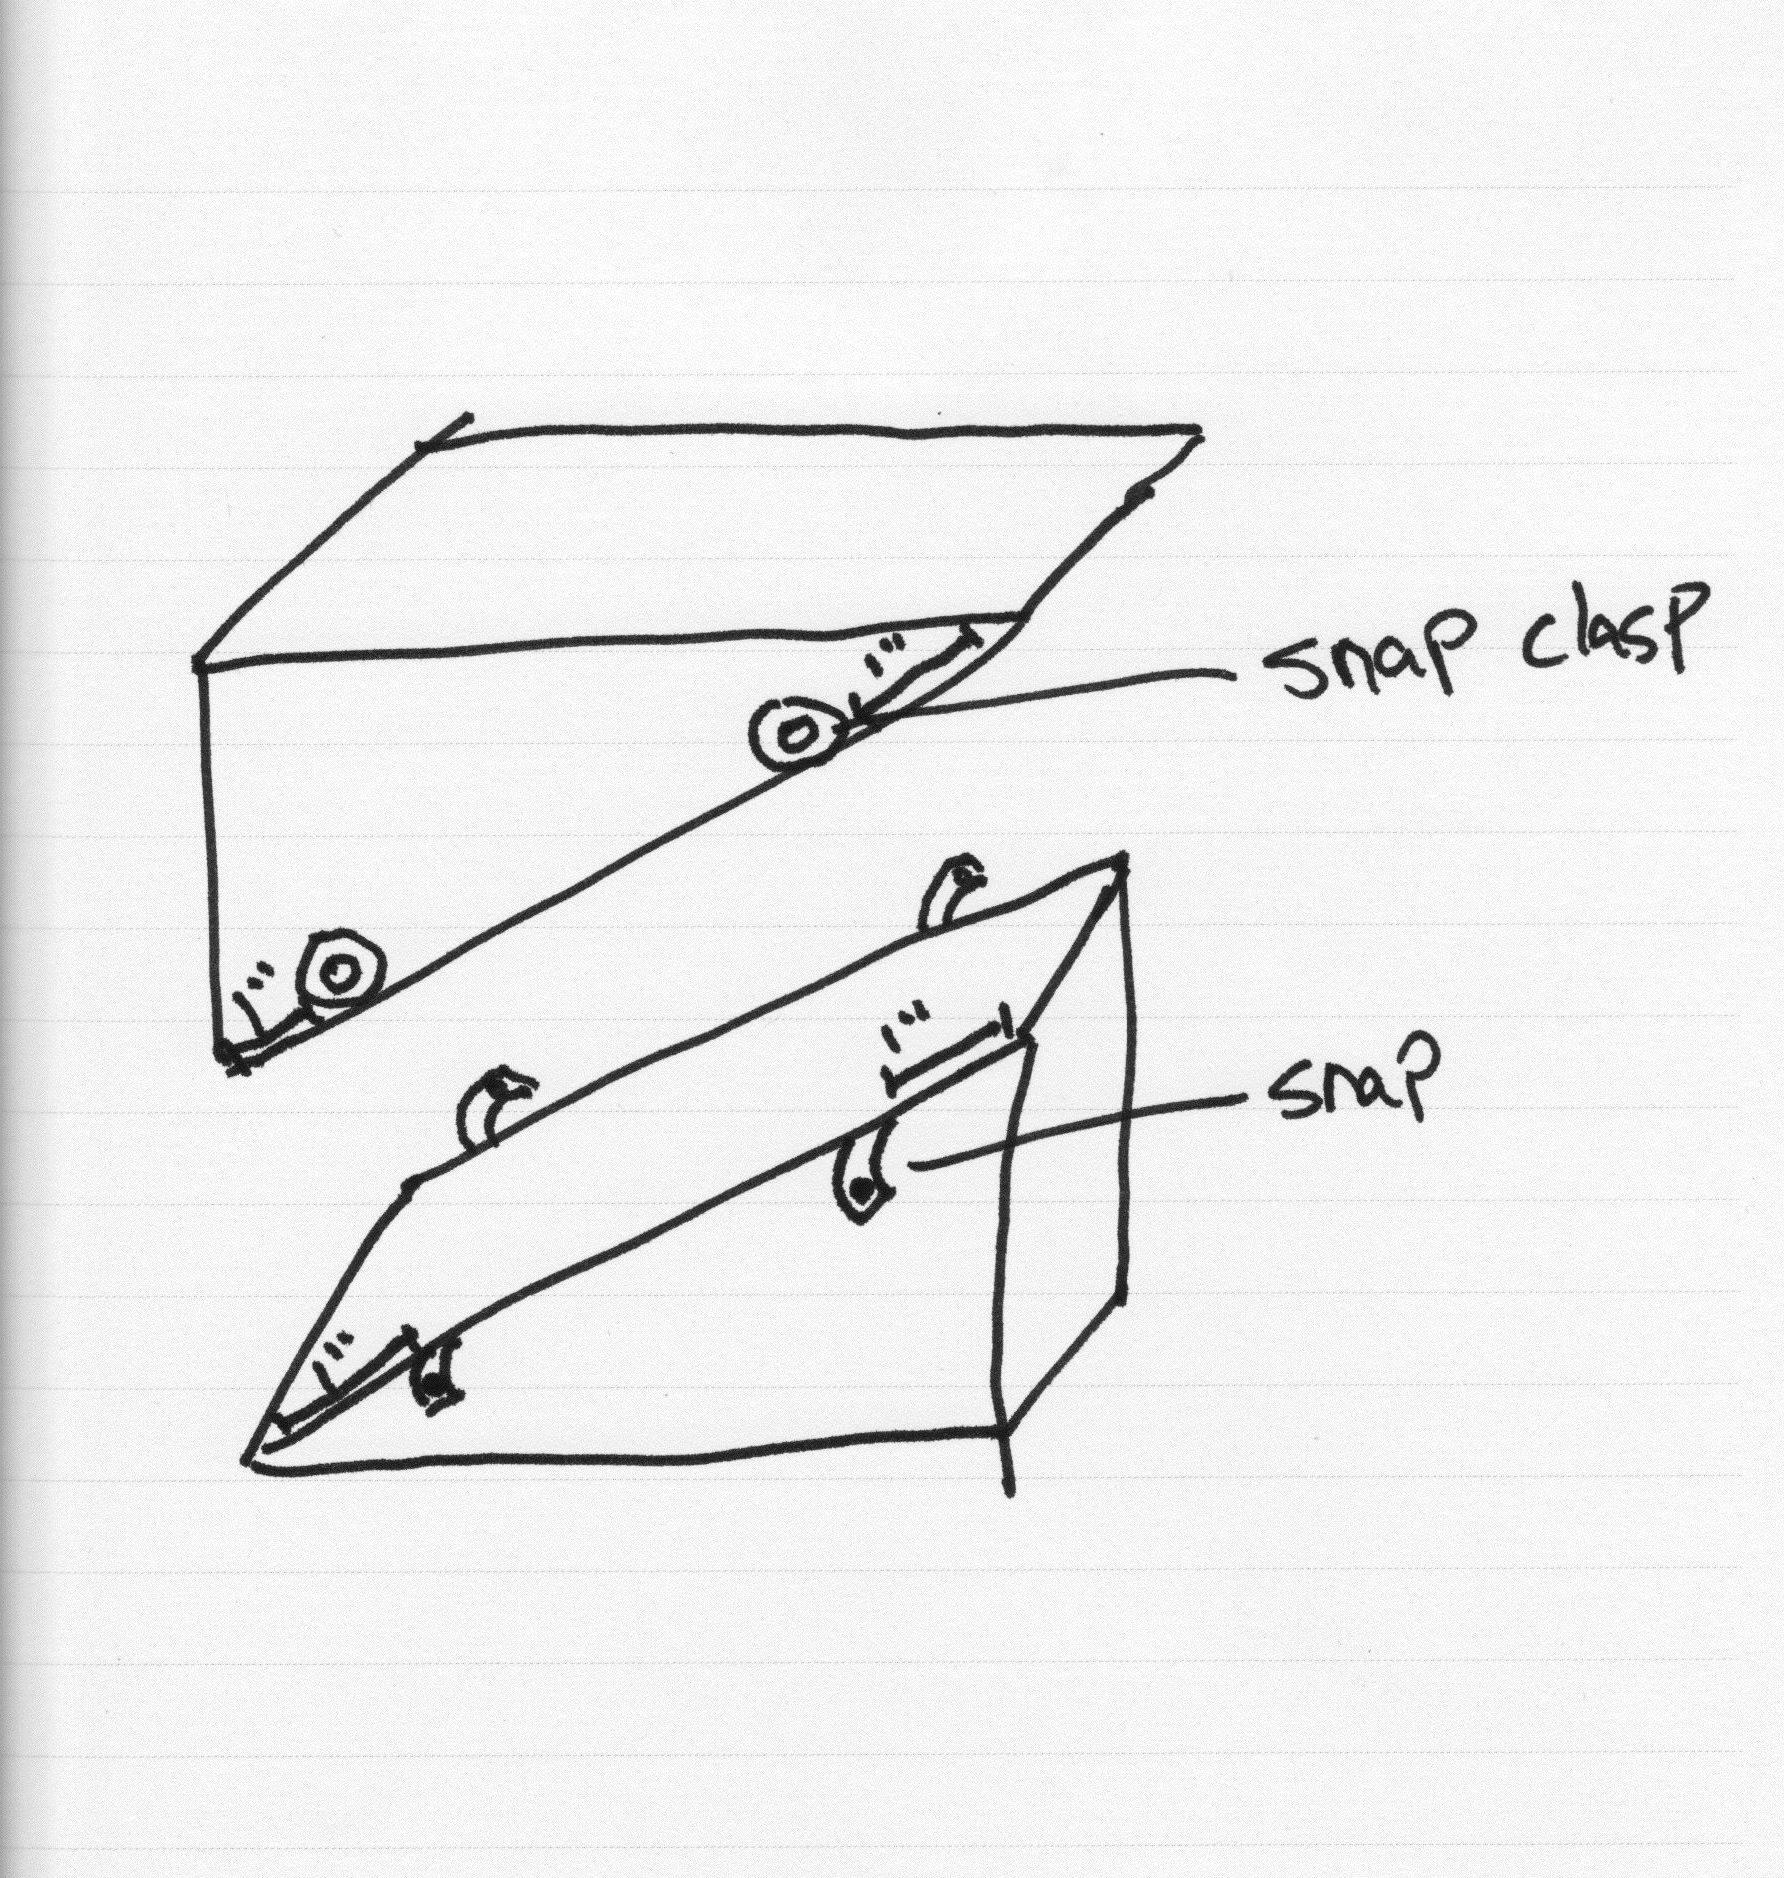 1"
snap clasp
1"
1"
snap
1"